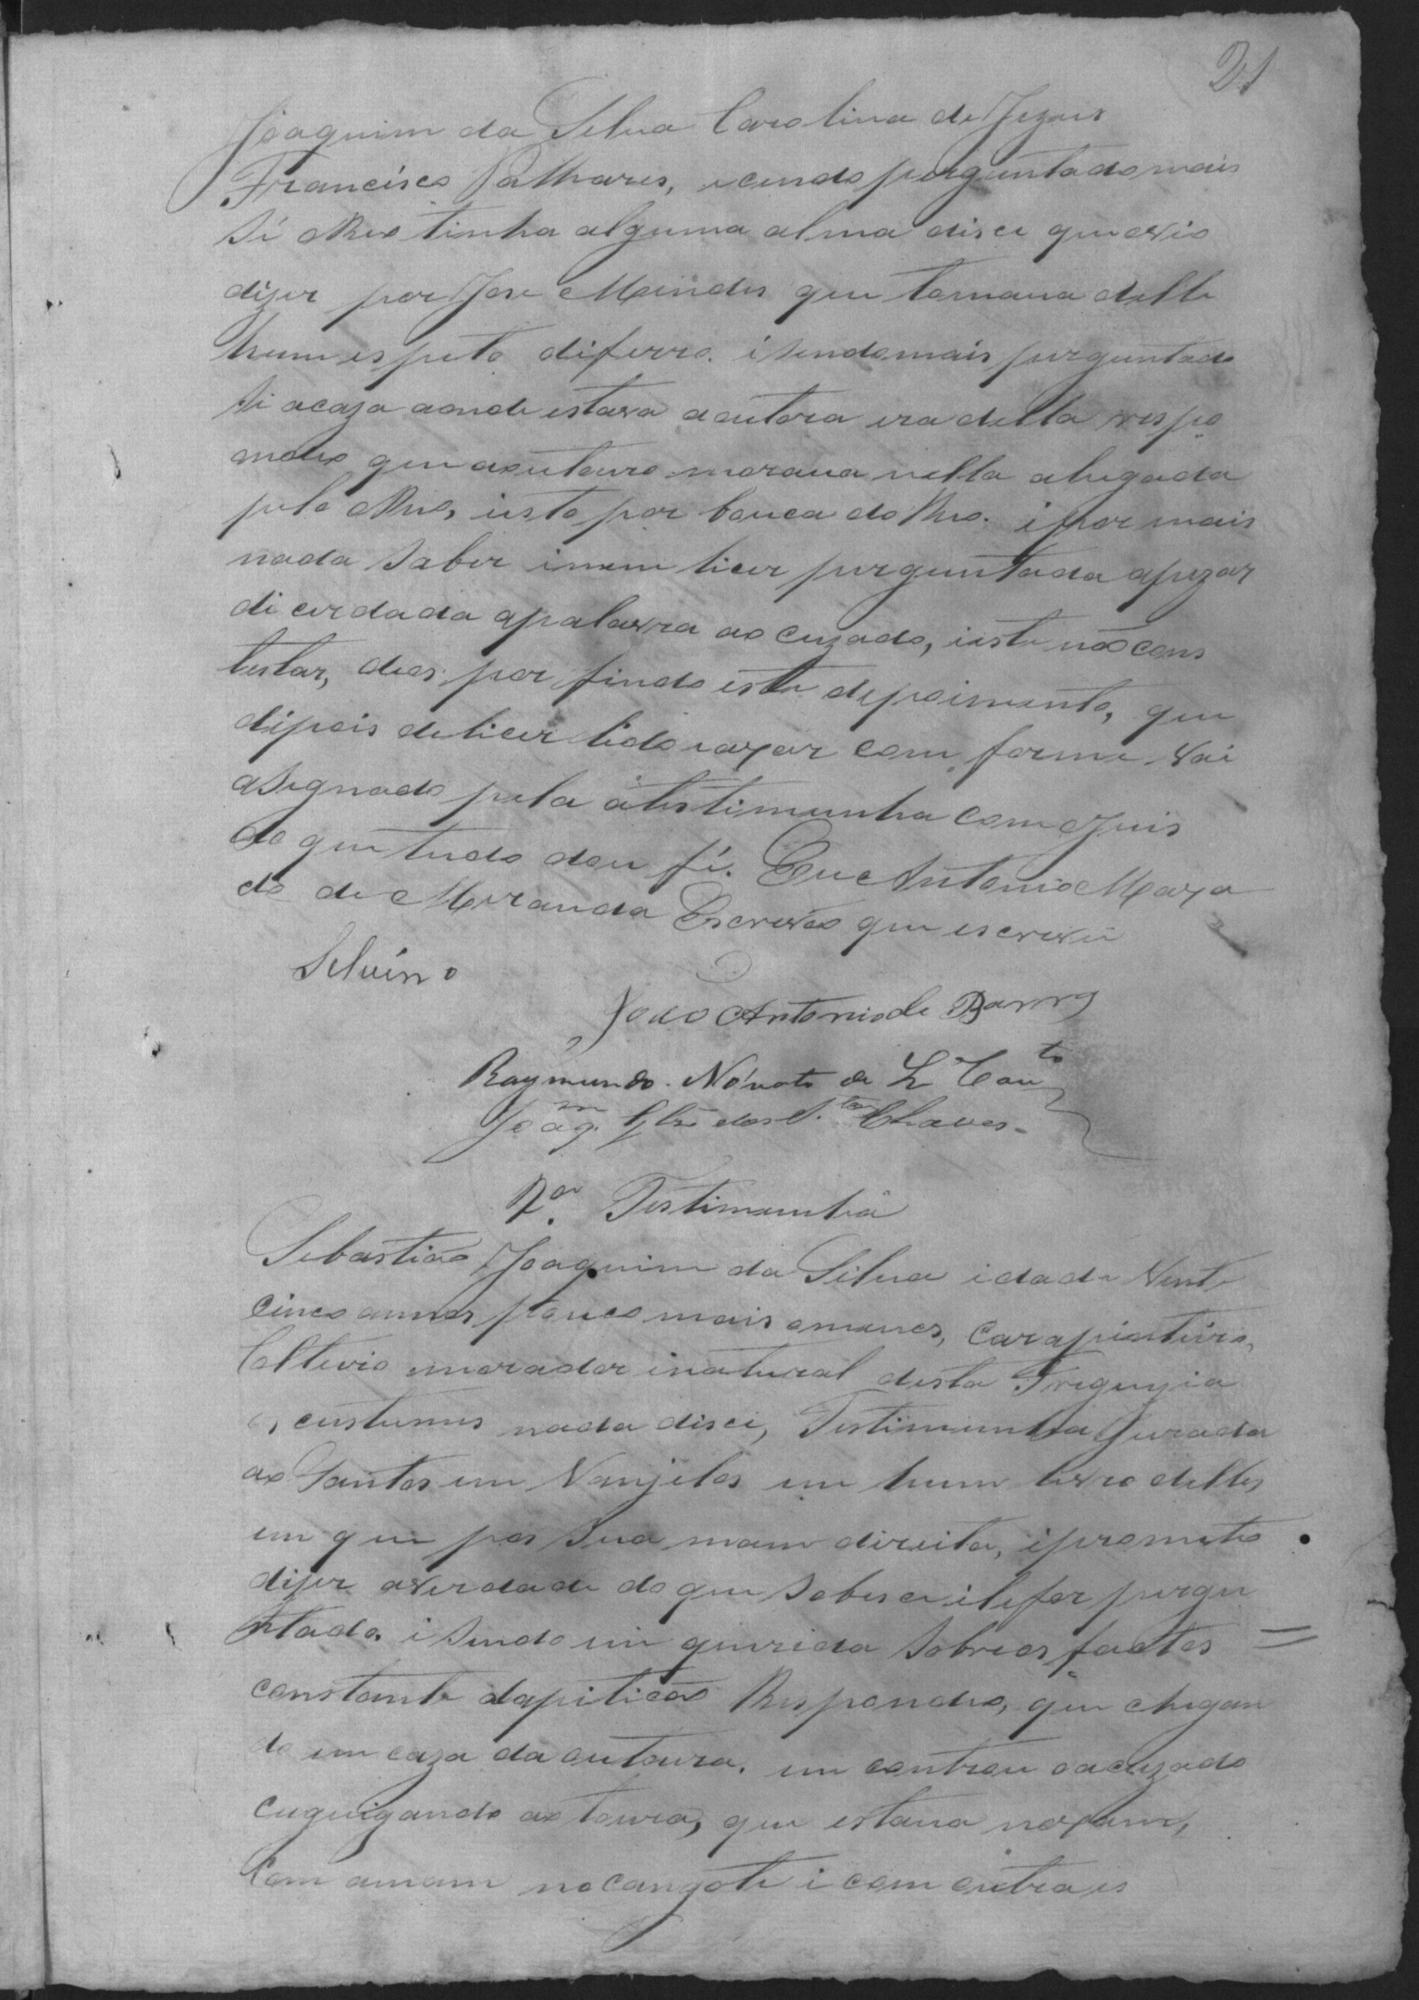 21
Joaquim da Silva Carolina de Jezus
Francisco Palhares, icendo perguntado mais
Si o Reo tinha alguma alma disce que ovio
dizer por Jose Mendes que tomava delle
hum espeto diferro. i sendo mais perguntado
Si acaza aonde estava a autora era della respo
ndeo que a autoura morava nella alugada
pelo Reo, isto por bouca do Reo. i por mais
nada Saber inem licer perguntada apezar
di cerdada apalavra ao cuzado, ieste não cons
testar, deos por findo este depoimento, que
dipois de licer lido iaxar com forme vai
asignado pela a testimunha com o Juis
do que tudo dou fé. Eu Antonio Maxa
do de Miranda Escrivão que iscrevii
Silvino
João Antonio de Barros
Raymundo Nonato de L Couto
Joaqm. Glz dos S.tos Chaves
7a. Testimunha
Sebastião Joaquim da Silva idade Vinte
Cinco annos pouco mais o menos, Carapinteiro,
Solteiro morador inatural desta Freguyia
os custumes nada disci, Testimunha Jurada
ao Santos em Vanjelos em hum livro delles
em que pos Sua mam direita, iprometeo
dizer averdade do que Sobese ilefor pergu
ntado. i Sendo in quirida Sobre os factos
constante dapitição Respondeo, que chegan
do em caza da autoura. em controu oacuzado
cuguigando ao toura, que estava no xam,
Com amam nocangote i com outra is